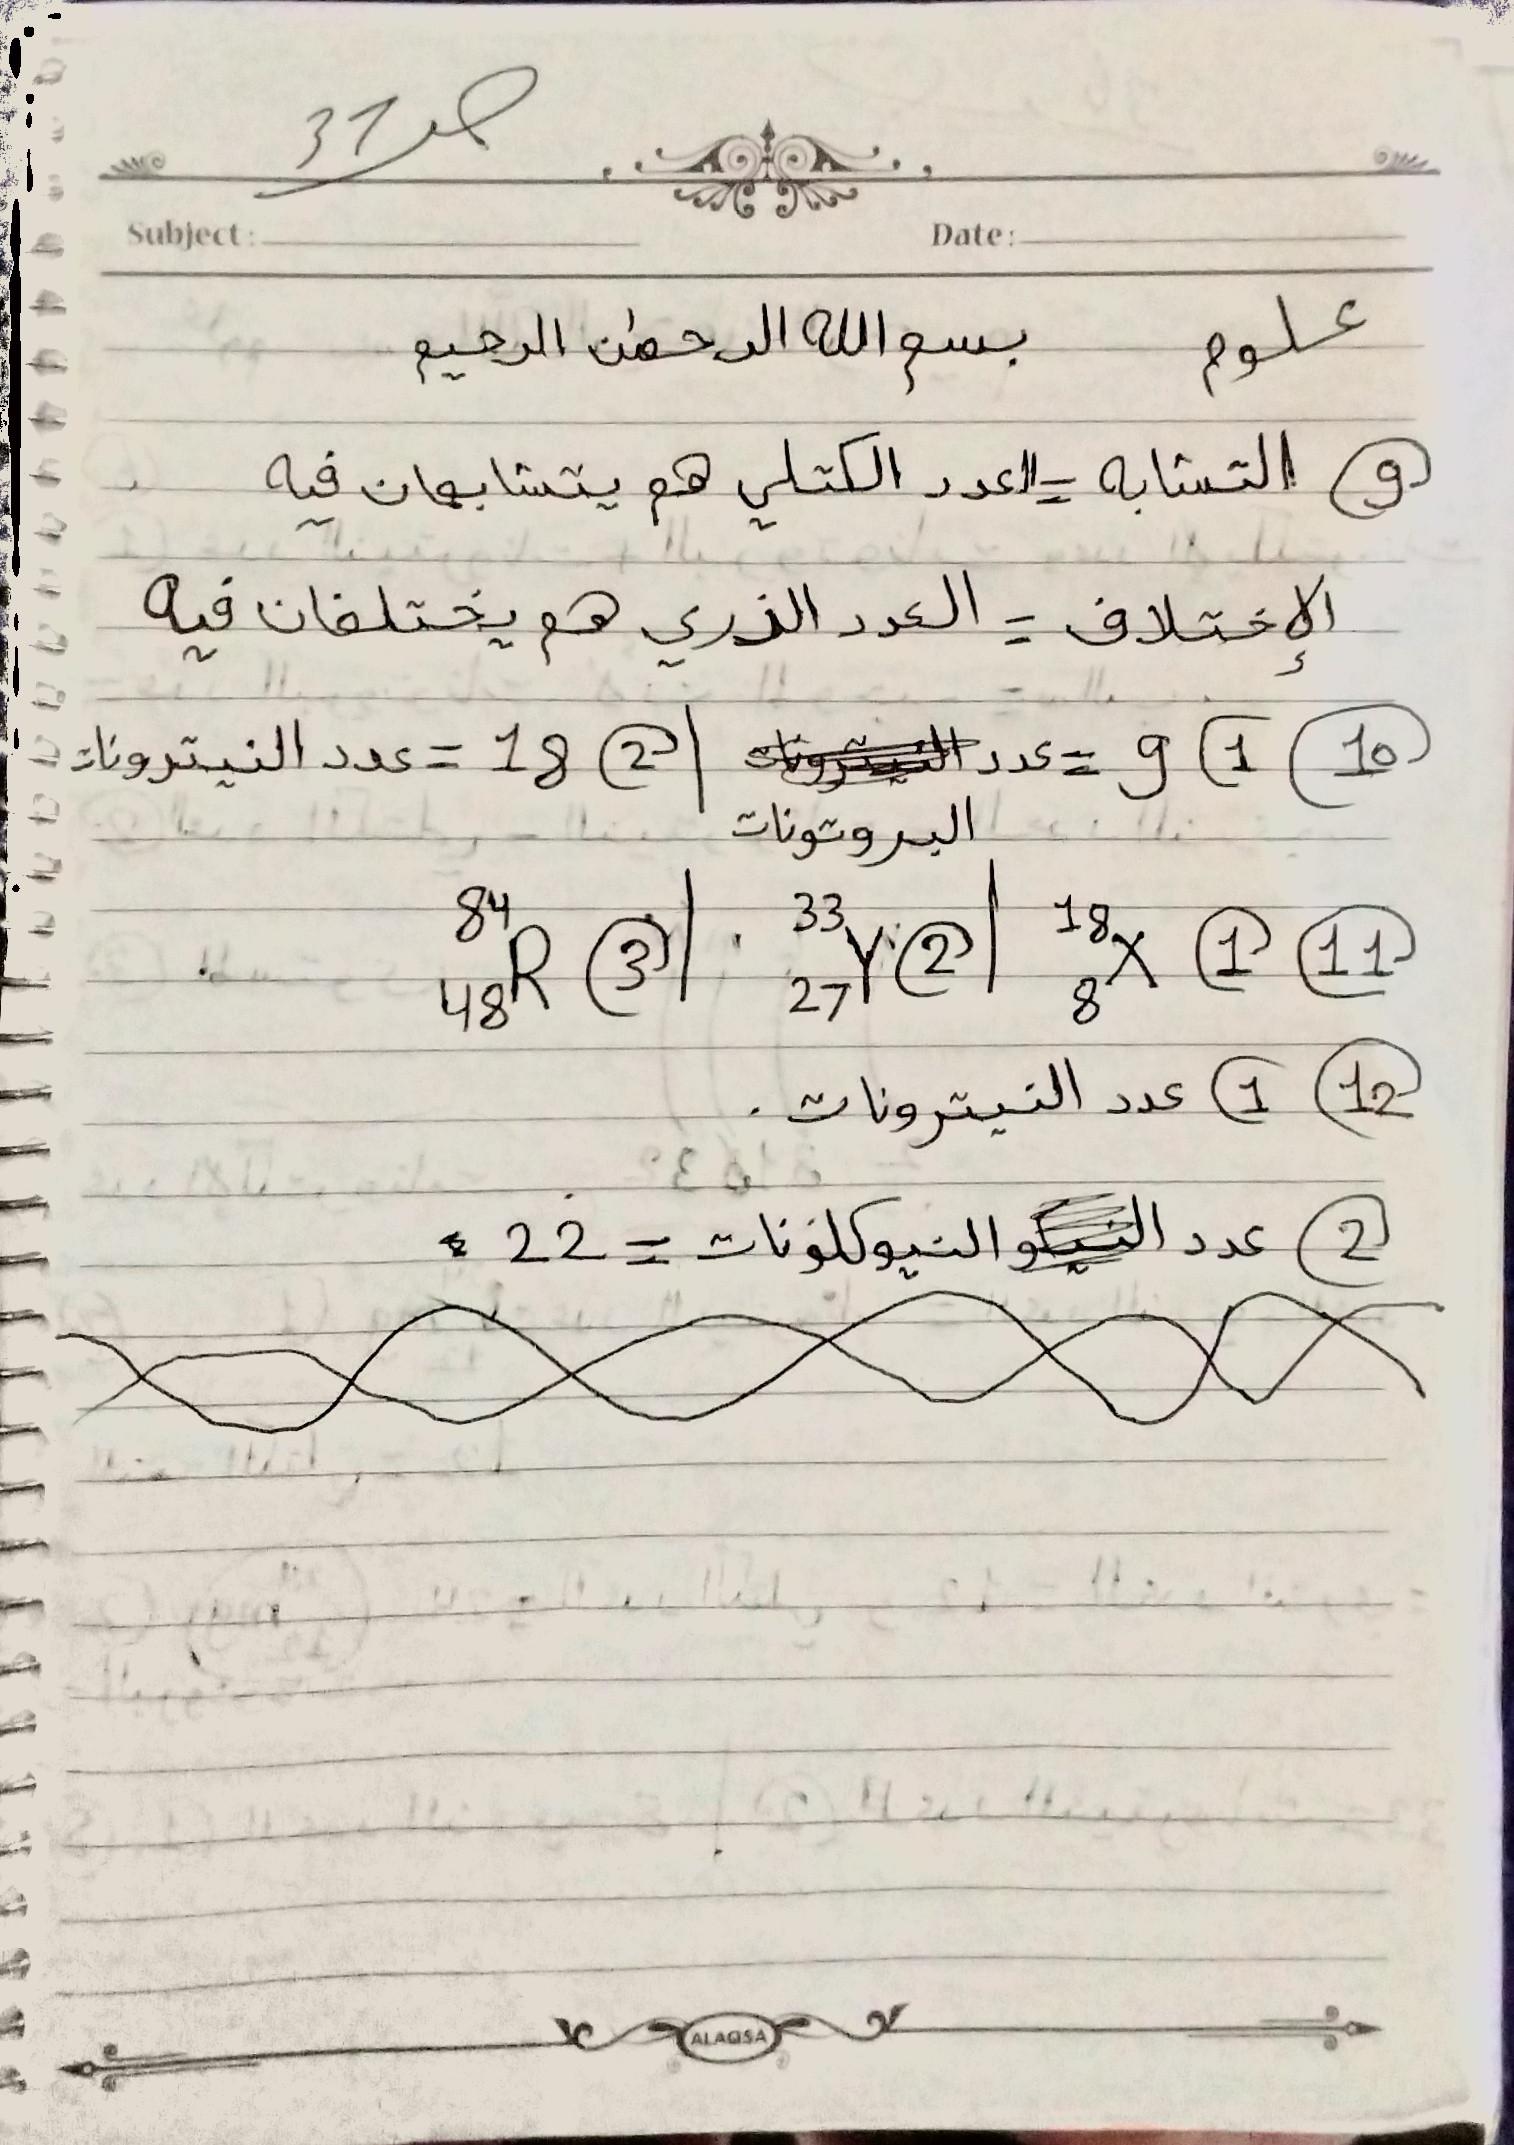 ص 31
Subject: Date:
علوم بسم الله الرحمٰن الرحيم
9 التشابه = العدد الكتلي هم يتشابهان فيه
الإختلاف = العدد الذري هم يختلفان فيه
10 1 9 = عدد | 2 18 = عدد النيترونات
البروتونات
11 1 ¹⁸₈X | 2 ³³₂₇Y | 3 ⁸⁴₄₈R
12 1 عدد النيترونات .
2 عدد النيوكلونات = 22
ALAQSA